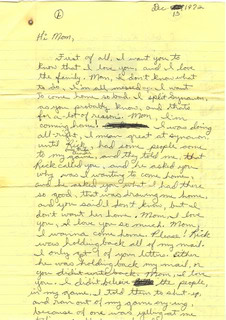 Dec 1972
13
Hi Mom,
First of all, I want you to
know that I love you, and I love
the family. Mom, I don't know what
to do, I'm all messed up. I want
to come home, so bad. I split Synanon,
as you probably know, and that's
for a lot of reasons. Mom, I'm
coming home! I was doing
all-right, I mean great at Synanon
until had some people come
to my game, and they told me, that
Rick called you, and he asked you
why was I wanting to come home,
and he asked you what I had there
so good, that was drawing me home
and you said I don't know, but I
don't want her home. Mom, I love
you, I love you so much. Mom,
I wanna come home. Please! Rick
was holding back all of my mail.
I only got 4 of your letters. Either
he was holding back my mail, or
you didn't write back. Mom, I love
you. I didn't believe the people,
in my game, I told them to shut up,
and ran out of my game crying,
because of one was yelling at me